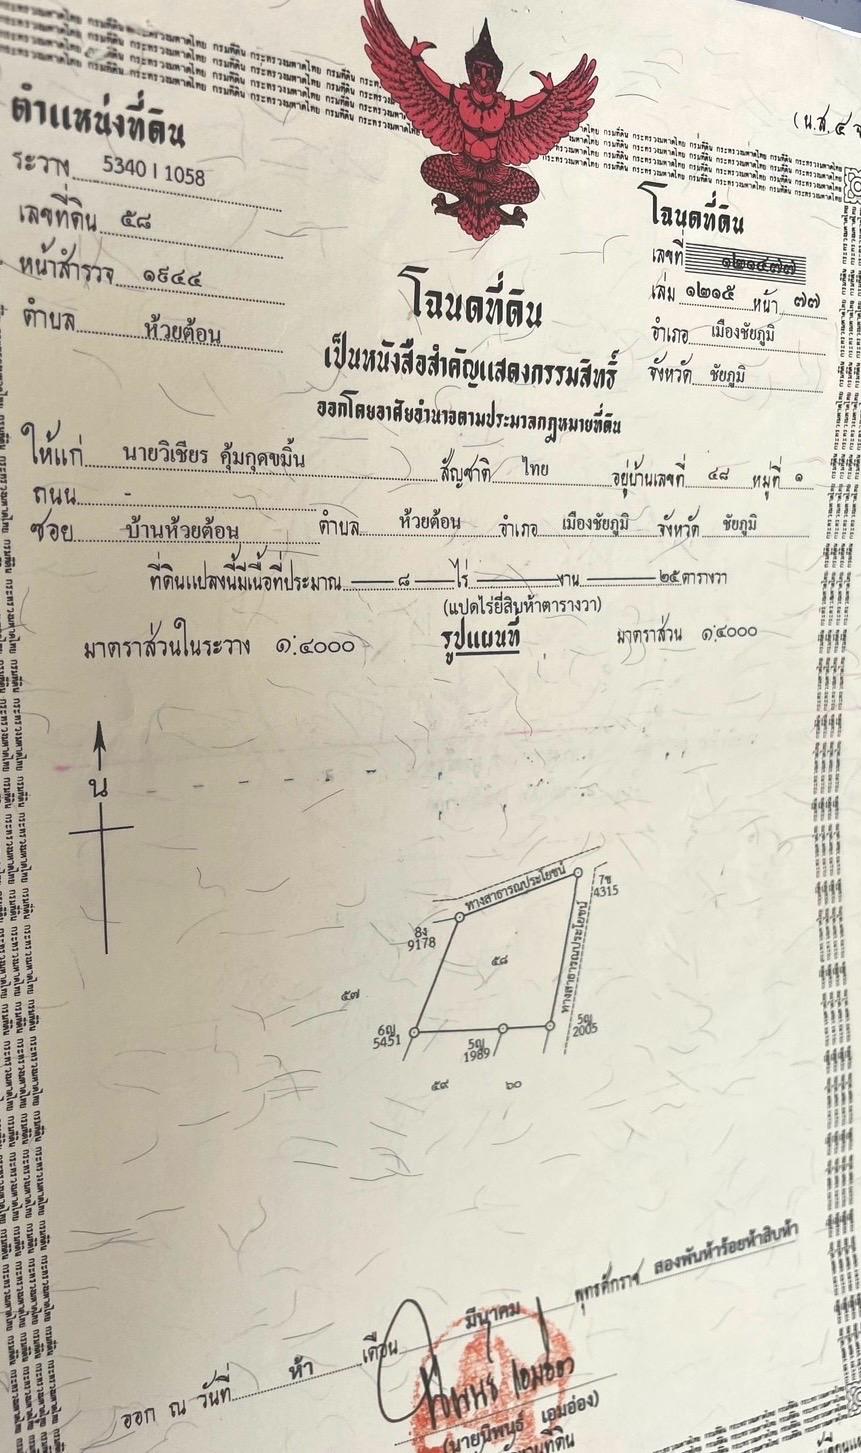 กระทรวงมหาดไทย กรมที่ดิน กระทรวงมหาดไทย กรมที่ดิน กระทรวงมหาดไทย
(น.ส. ๔ จ
ตำแหน่งที่ดิน
ระวาง 5340 I 1058
เลขที่ดิน ๕๘
หน้าสำรวจ ๑๙๔๔
ตำบล ห้วยต้อน
โฉนดที่ดิน
เลขที่ ๑๒๑๔๗๗
เล่ม ๑๒๑๕ หน้า ๗๗
อำเภอ เมืองชัยภูมิ
จังหวัด ชัยภูมิ
โฉนดที่ดิน
เป็นหนังสือสำคัญแสดงกรรมสิทธิ์
ออกโดยอาศัยอำนาจตามประมวลกฎหมายที่ดิน
ให้แก่ นายวิเชียร คุ้มกุดขมิ้น สัญชาติ ไทย อยู่บ้านเลขที่ ๔๘ หมู่ที่ ๑
ถนน -
ซอย บ้านห้วยต้อน ตำบล ห้วยต้อน อำเภอ เมืองชัยภูมิ จังหวัด ชัยภูมิ
ที่ดินแปลงนี้มีเนื้อที่ประมาณ ๘ ไร่ งาน ๒๕ ตารางวา
(แปดไร่ยี่สิบห้าตารางวา)
มาตราส่วนในระวาง ๑:๔๐๐๐ รูปแผนที่ มาตราส่วน ๑:๔๐๐๐
น
ทางสาธารณประโยชน์
7ช
4315
8ง
9178
๕๘
ทางสาธารณประโยชน์
๕๗
6ญ
5451
5ญ
1989
5ญ
2005
๕๙ ๖๐
ออก ณ วันที่ ห้า เดือน มีนาคม พุทธศักราช สองพันห้าร้อยห้าสิบห้า
นิพนธ์ เอมอ่อง
(นายนิพนธ์ เอมอ่อง)